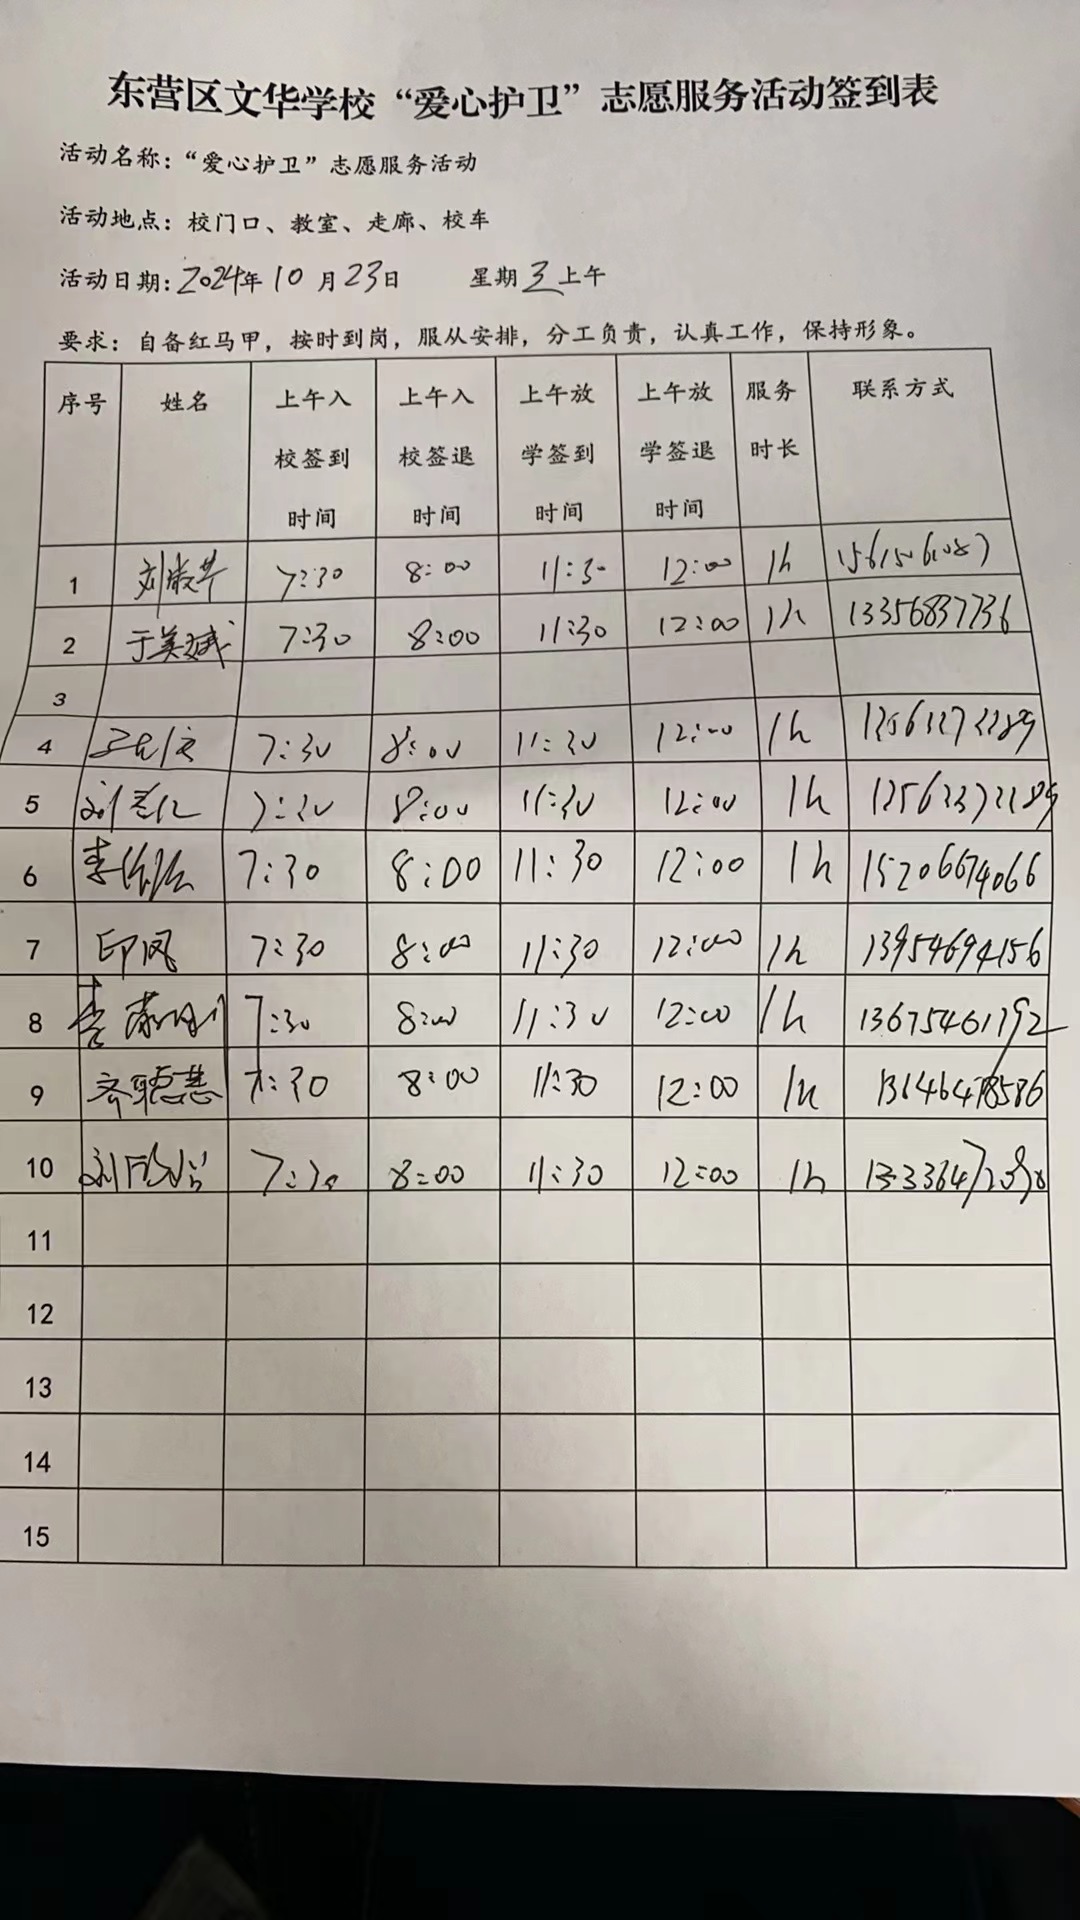 东营区文华学校“爱心护卫”志愿服务活动签到表
活动名称：“爱心护卫”志愿服务活动
活动地点：校门口、教室、走廊、校车
活动日期：2024年10月23日 星期3上午
要求：自备红马甲，按时到岗，服从安排，分工负责，认真工作，保持形象。
序号 姓名 上午入校签到时间 上午入校签退时间 上午放学签到时间 上午放学签退时间 服务时长 联系方式
1 7:30 8:00 11:30 12:00 1h
2 于美斌 7:30 8:00 11:30 12:00 1h 13356837736
3
4 7:30 8:00 11:30 12:00 1h
5 7:30 8:00 11:30 12:00 1h
6 7:30 8:00 11:30 12:00 1h 15206674066
7 印凤 7:30 8:00 11:30 12:00 1h 13954694156
8 7:30 8:00 11:30 12:00 1h
9 齐聪慧 7:30 8:00 11:30 12:00 1h
10 7:30 8:00 11:30 12:00 1h
11
12
13
14
15